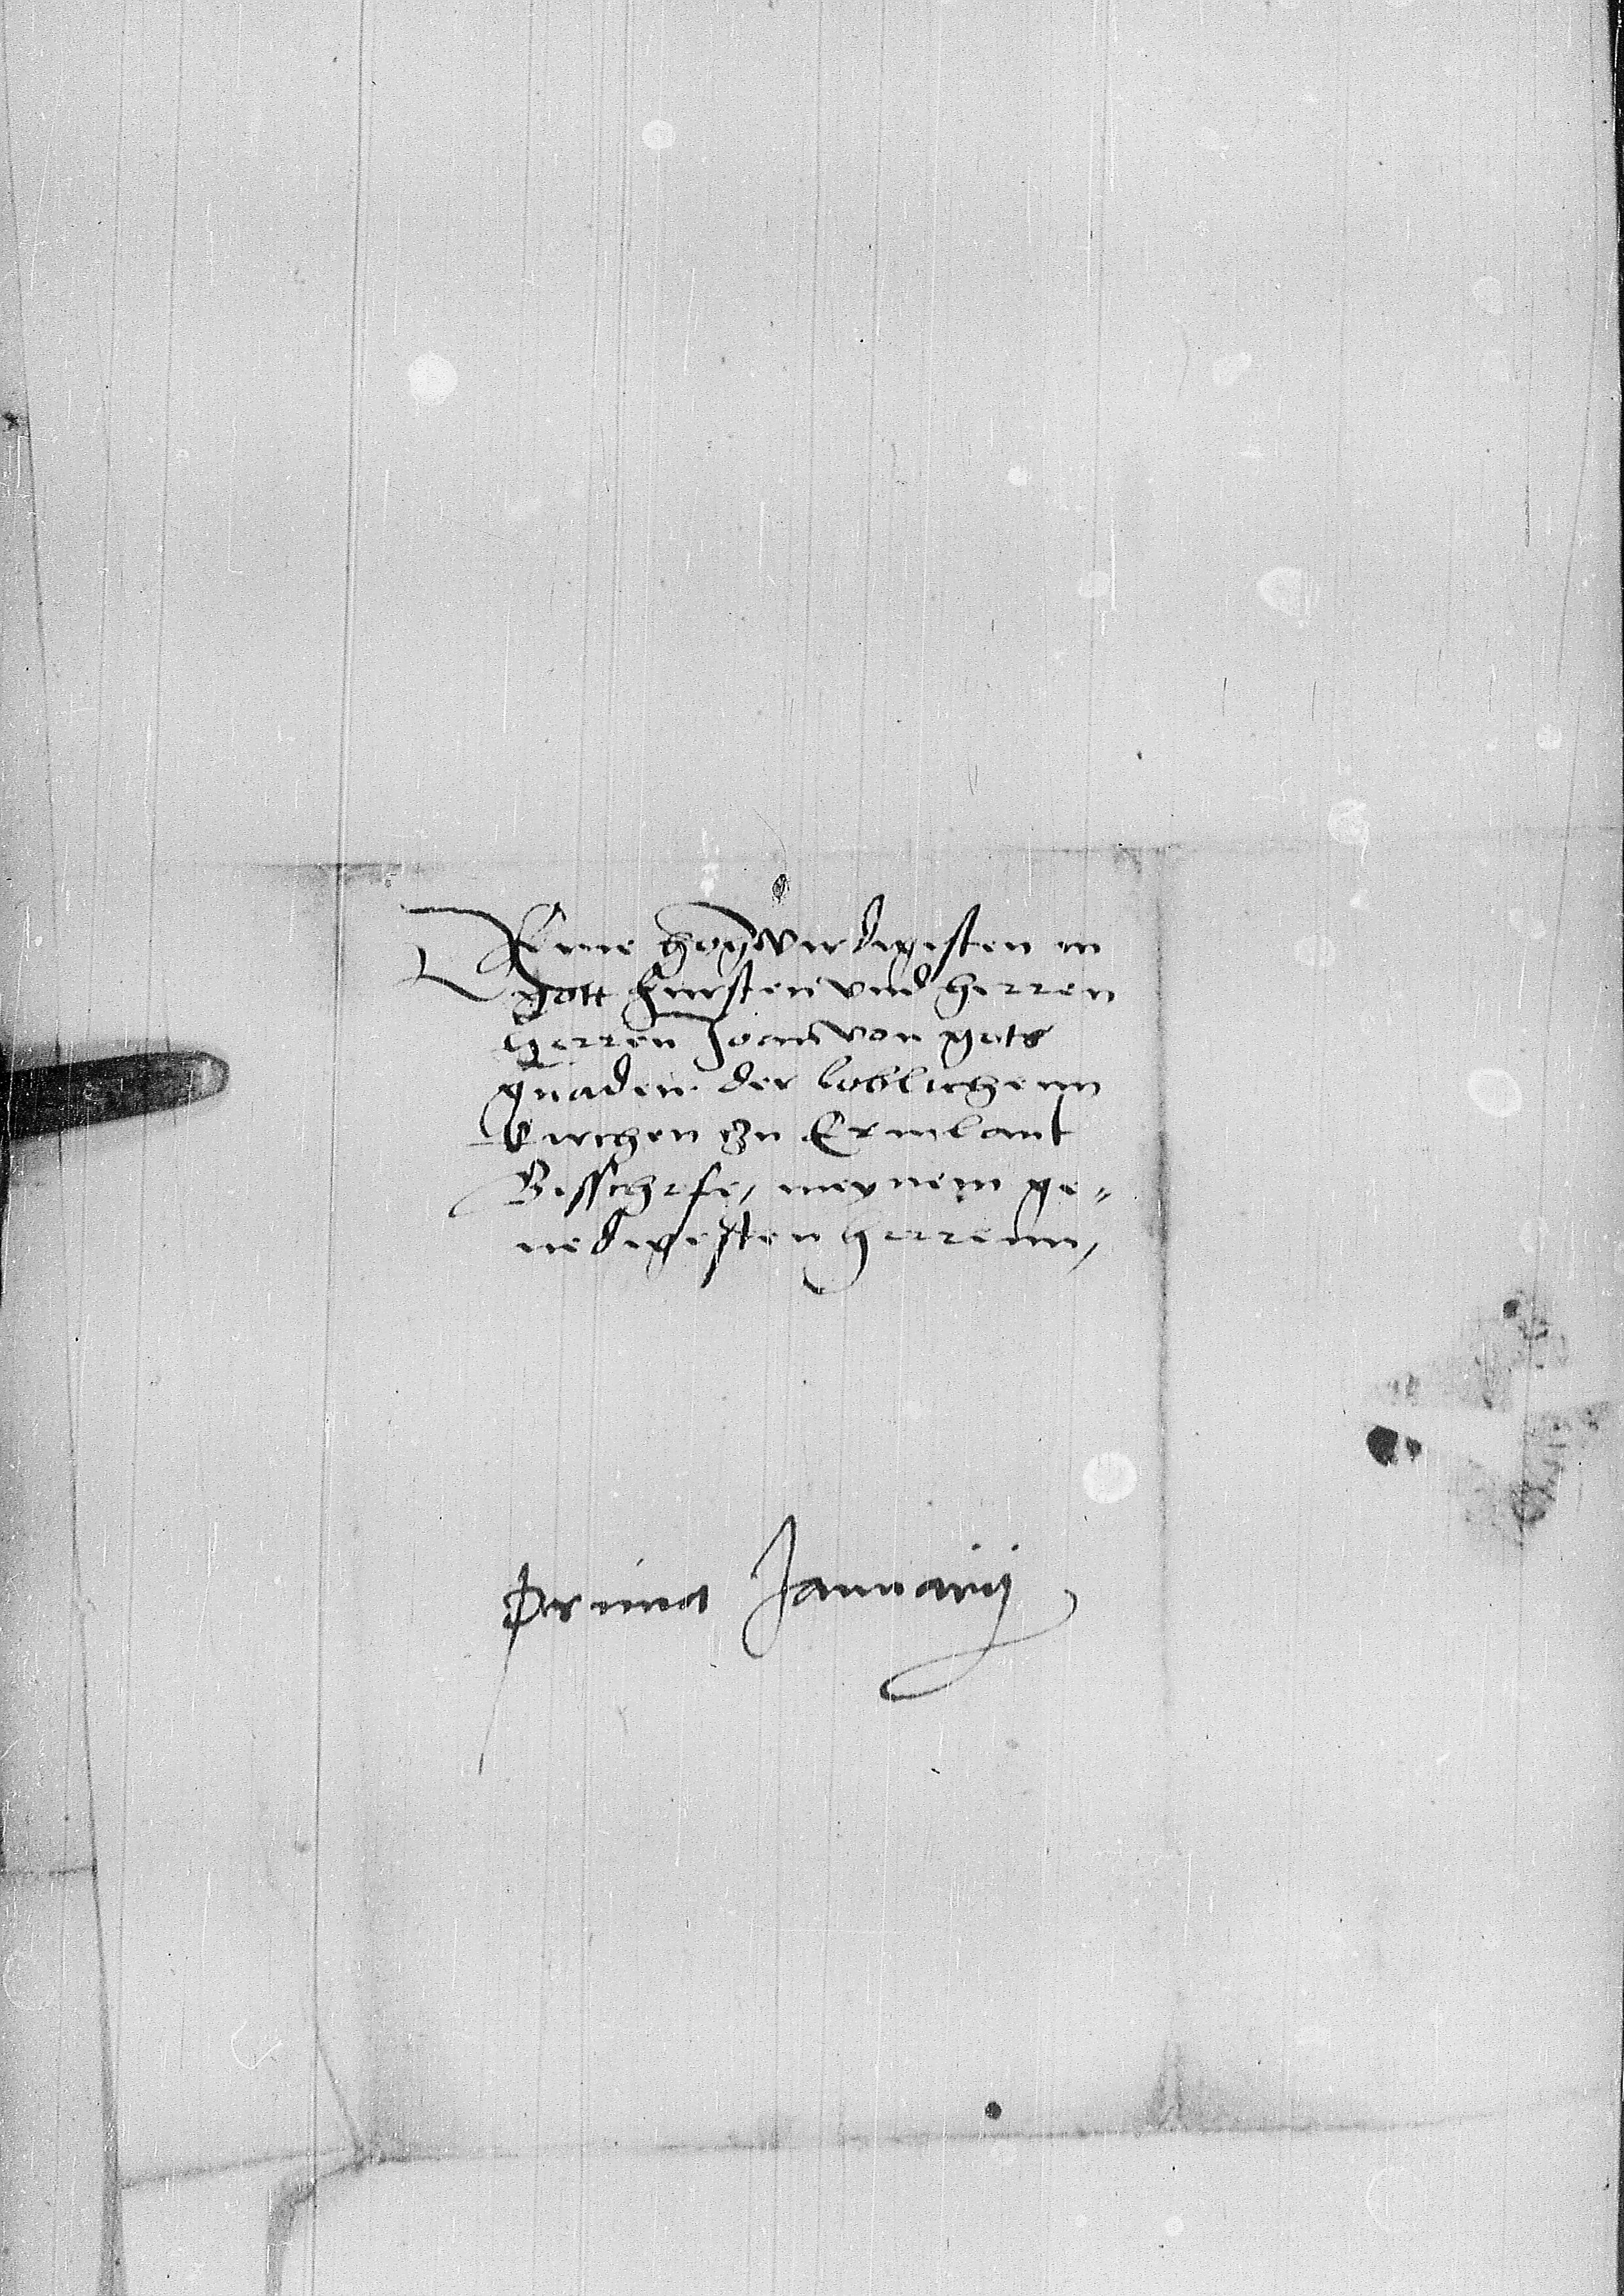 Deme hochwirdigisten in
Gott Fursten vnd herren
Herren Joan von gots
gnaden der loblichenn
kirchen zu Ermlant
Bisschefe, meynem ge-
nedigisten herrenn,
Prima Januarij